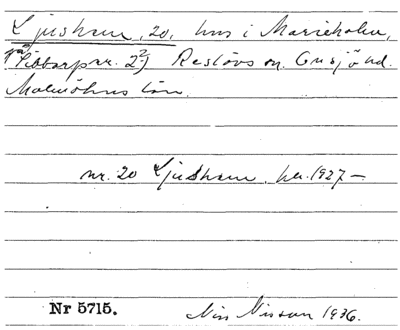 Ljusham, 20, hus i Marieholm,
på Sibbarp nr. 2²⁹) Reslövs sn. Onsjö hd.
Malmöhus län.
nr. 20 Ljusham, ha. 1927–
Nr 5715.
Nils Nilsson 1936.